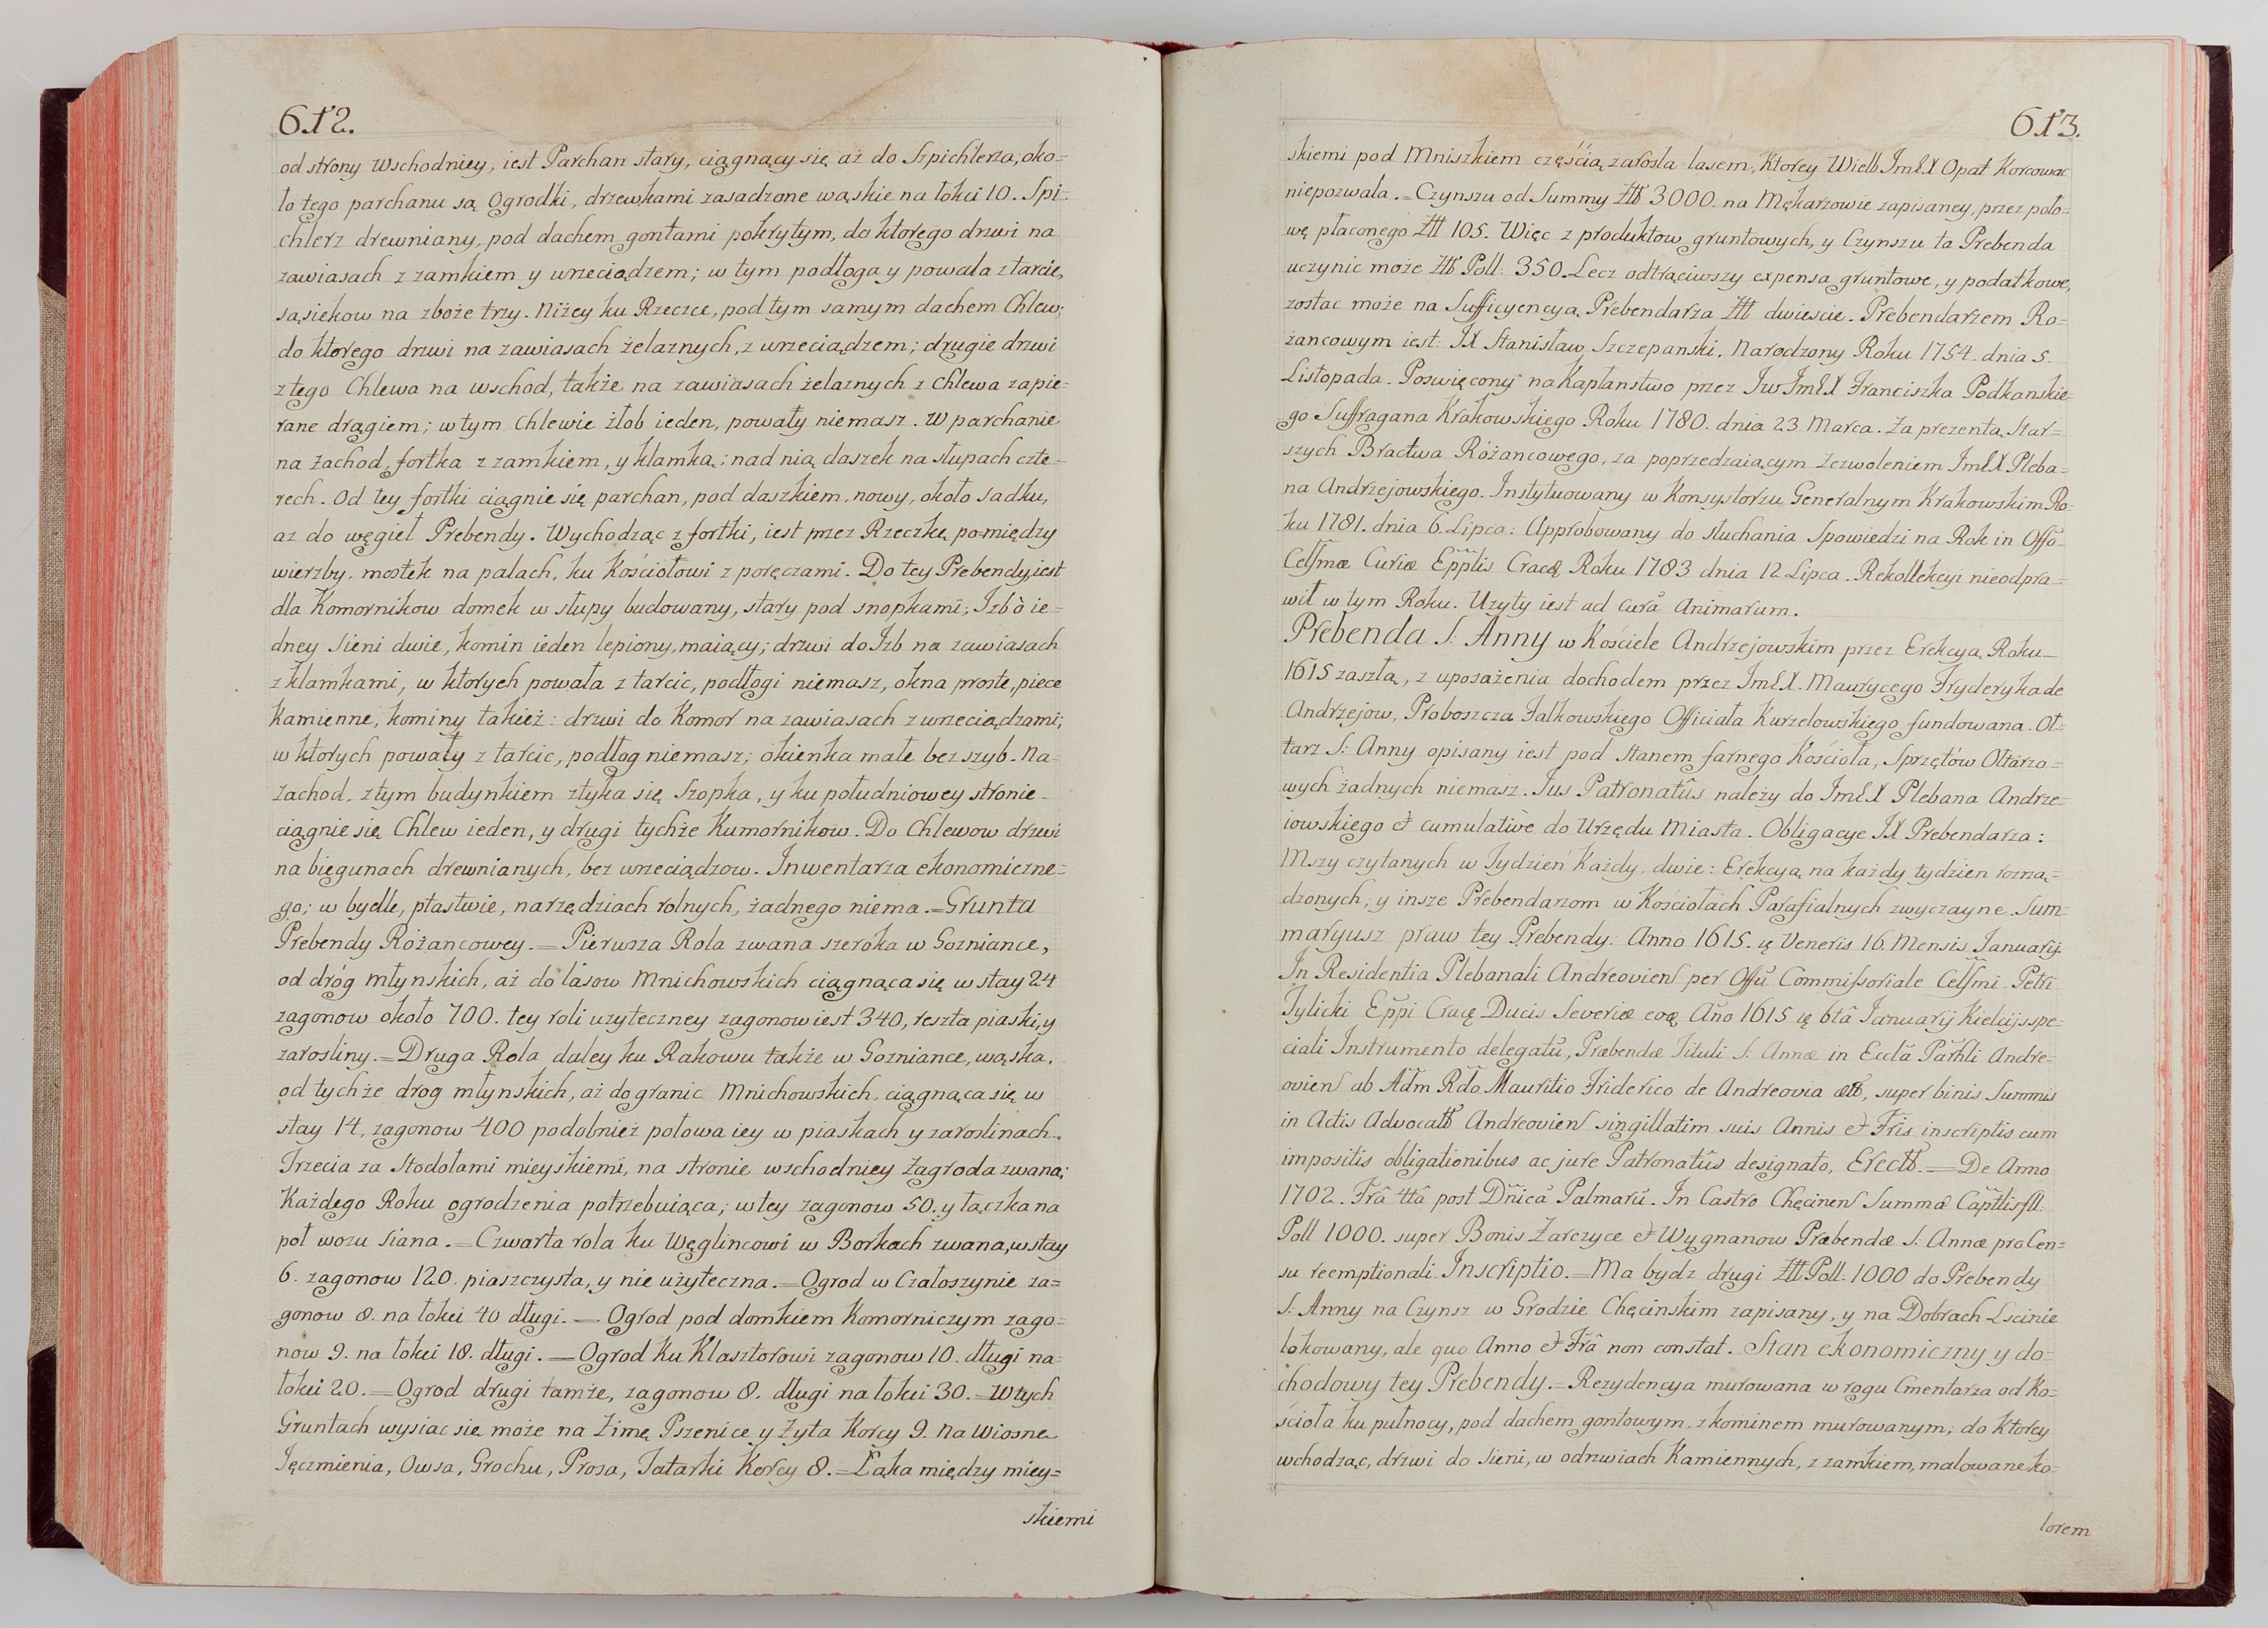 612.
od strony Wschodniey, iest Parchan stary, ciągnący się aż do Szpichlerza; oko=
ło tego parchanu są Ogrodki, drzewkami zasadzone wąskie na łokci 10. Spi=
chlerz drewniany, pod dachem gontami pokrytym, do ktorego drzwi na
zawiasach z zamkiem y wrzeciądzem; w tym podłoga y powała z tarcic,
sąsiekow na zboże trzy. Niżey ku Rzeczce, pod tym samym dachem Chlew;
do ktorego drzwi na zawiasach żelaznych, z wrzeciądzem; drugie drzwi
z tego Chlewa na wschod, także na zawiasach żelaznych z Chlewa zapie=
rane drągiem; w tym Chlewie żłob ieden, powały niemasz. W parchanie
na Zachod, fortka z zamkiem, y klamką; nad nią daszek na słupach czte=
rech. Od tey fortki ciągnie się parchan, pod daszkiem, nowy, około sadku,
az do węgieł Prebendy. Wychodząc z fortki, iest przez Rzeczkę pomiędzy
wierzby, mostek na palach, ku Kościołowi z poręczami. Do tey Prebendy, iest
dla Komornikow domek w słupy budowany, stary pod snopkami; Izbo ie=
dney Sieni dwie, komin ieden lepiony, maiący; drzwi do Izb na zawiasach
z klamkami, w ktorych powała z tarcic, podłogi niemasz, okna proste, piece
Kamienne, kominy takież: drzwi do Komor na zawiasach z wrzeciądzami;
w ktorych powały z tarcic, podłog niemasz; okienka małe bez szyb. Na=
Zachod, z tym budynkiem ztyka się Szopka, y ku południowey stronie=
ciągnie się Chlew ieden, y drugi tychże Kumornikow. Do Chlewow drzwi
na biegunach drewnianych, bez wrzeciądzow. Inwentarza ekonomiczne=
go; w bydle, ptastwie, narzędziach rolnych, żadnego niema.=Grunta
Prebendy Różancowey.=Pierwsza Rola zwana szeroka w Gozniance,
od dróg młynskich, aż do lasow Mnichowskich ciągnąca się w stay 24
zagonow około 700. tey roli uzyteczney zagonow iest 340, reszta piaski, y
zarosliny.=Druga Rola daley ku Rakowu także w Gozniance, wąska,
od tychże drog młynskich, aż do granic Mnichowskich, ciągnąca się w
stay 14, zagonow 400 podobnież połowa iey w piaskach y zaroslinach.
Trzecia za Stodołami mieyskiemi, na stronie wschodniey Zagroda zwana;
Każdego Roku ogrodzenia potrzebuiąca; w tey zagonow 50. y łączka na
poł wozu Siana.=Czwarta rola ku Węglincowi w Borkach zwana, w stay
6. zagonow 120. piaszczysta, y nie użyteczna.=Ogrod w Czałoszynie za=
gonow 8. na łokci 40 długi.=Ogrod pod domkiem Komorniczym zago=
now 9. na łokci 18. długi.=Ogrod Ku Klasztorowi zagonow 10. długi na=
łokci 20.=Ogrod drugi tamże, zagonow 8. długi na łokci 30.=W tych
Gruntach wysiac się może na Zimę Pszenice y Żyta Korcy 9. na Wiosnę
Jęczmienia, Owsa, Grochu, Prosa, Tatarki Korcy 8.=Łąka między miey=
skiemi
613.
skiemi pod Mniszkiem częścią zarosła lasem, Ktorey Wielb JmX Opat Korcowac
niepozwala.=Czynszu od Summy Złł 3000. na Mękarzowie zapisaney, przez poło=
wę płaconego Złł 105. Więc z produktow gruntowych, y Czynszu ta Prebenda
uczynic może Złł Poll: 350. Lecz odtrąciwszy expensa gruntowe, y podatkowe,
zostac może na Sufficyencyą Prebendarza Złł dwiescie. Prebendarzem Ro=
żancowym iest: JX Stanisław Szczepanski. Narodzony Roku 1754. dnia 5.
Listopada. Poswięcony na Kapłanstwo przez Jw JmX Franciszka Podkanskie=
go Suffragana Krakowskiego Roku 1780. dnia 23 Marca. Za prezentą Star=
szych Bractwa Różancowego, za poprzedzaiącym Zezwoleniem JmX Pleba=
na Andrzejowskiego. Instytuowany w Konsystorzu Generalnym Krakowskim Ro=
ku 1781. dnia 6. Lipca: Approbowany do słuchania Spowiedzi na Rok in Offo
Celsmæ Curiæ Epplis Cracę Roku 1783 dnia 12 Lipca. Rekollekcyi nieodpra=
wił w tym Roku. Uzyty iest ad curã Animarum.
Prebenda S: Anny w Kościele Andrzejowskim przez Erekcyą Roku=
1615 zaszłą, z uposażenia dochodem przez JmX. Maurycego Fryderyka de
Andrzejow, Proboszcza Falkowskiego Officiała Kurzelowskiego fundowana. Oł=
tarz S: Anny opisany iest pod Stanem farnego Kościoła, Sprzętów Ołtarzo=
wych żadnych niemasz. Jus Patronatûs należy do JmX Plebana Andrze=
iowskiego et cumulative do Urzędu Miasta. Obligacye JX Prebendarza:
Mszy czytanych w Tydzień Każdy, dwie: Erekcyą na każdy tydzien rozną=
dzonych; y insze Prebendarzom w Kościołach Parafialnych zwyczayne. Sum=
maryusz praw tey Prebendy. Anno 1615. ię Veneris 16. Mensis Januarij.
In Residentia Plebanali Andreovien per Offũ Commissoriale Celsmi Petri
Tylicki Eppi Cracę Ducis Severiæ Año 1615 ię 6tâ Januarij Kielcijs spe=
ciali Instrumento delegatũ, Præbendæ Tituli S: Annæ in Eccla Parhli Andre=
ovien ab Adm Rdo Mauritio Friderico de Andreovia, super binis Summis
in Actis Advocatt Andreovien singillatim suis Annis et Fris inscriptis cum
impositis obligationibus ac jure Patronatûs designato, Erectt.=De Anno
1702. Frâ 4tâ post Dnicã Palmarũ. In Castro Chęcinen Summæ Capttlis fll.
Poll 1000. super Bonis Zarczyce et Wygnanow Præbendæ S: Annæ pro Cen=
su reemptionali. Inscriptio.=Ma bydz drugi Złł Poll. 1000 do Prebendy
S: Anny na Czynsz w Grodzie Chęcinskim zapisany, y na Dobrach Lscinie
lokowany, ale quo Anno et Frâ non constat. Stan ekonomiczny y do=
chodowy tey Prebendy.=Rezydencya murowana w rogu Cmentarza od Ko=
ścioła ku pułnocy, pod dachem gontowym, z kominem murowanym; do Ktorey
wchodząc, drzwi do Sieni, w odrzwiach Kamiennych, z zamkiem, malowane ko=
lorem